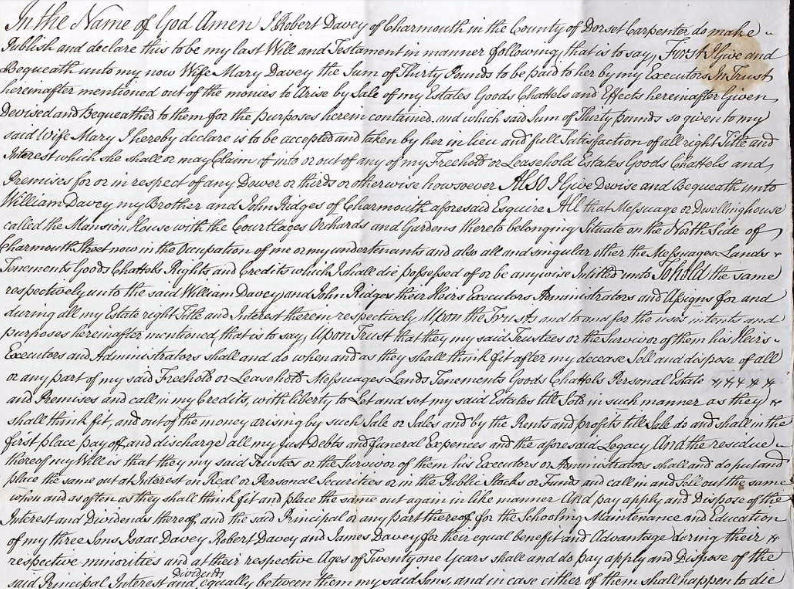 In the Name of God Amen I Robert Davey of Charmouth in the County of Dorset Carpenter do make
Publish and declare this to be my last Will and Testament in manner following, that is to say, First I Give and
Bequeath unto my now Wife Mary Davey the Sum of Thirty Pounds to be paid to her by my Executors In Trust
hereinafter mentioned out of the monies to Arise by Sale of my Estates Goods Chattels and Effects hereinafter Given
Devised and Bequeathed to them for the purposes herein contained, and which said Sum of Thirty pounds so given to my
said Wife Mary I hereby declare is to be accepted and taken by her in lieu and full Satisfaction of all right Title and
Interest which she shall or may Claim of into or out of any of my Freehold or Leasehold Estates Goods Chattels and
Premises for or in respect of any Dower or thirds or otherwise howsoever Also I Give Devise and Bequeath unto
William Davey my Brother and John Ridges of Charmouth aforesaid Esquire All that Messuage or Dwellinghouse
called the Mansion House with the Courtlages Orchards and Gardens thereto belonging Situate on the North Side of
Charmouth Street now in the Occupation of me or my undertenants and also all and singular other the Messuages Lands
Tenements Goods Chattels Rights and Credits which I shall die possessed of or be anywise Intitled unto To hold the same
respectively unto the said William Davey and John Ridges their Heirs Executors Administrators and Assigns for and
during all my Estate right Title and Interest therein respectively Upon the Trusts and to and for the uses intents and
purposes hereinafter mentioned, that is to say, Upon Trust that they my said Trustees or the Survivor of them his Heirs
Executors and Administrators shall and do when and as they shall think fit after my decease Sell and dispose of all
or any part of my said Freehold or Leasehold Messuages Lands Tenements Goods Chattels Personal Estate
and Premises and call in my Credits, with liberty to Let and set my said Estates till Sold in such manner as they
shall think fit, and out of the money arising by such Sale or Sales and by the Rents and profits till Sale do and shall in the
first place pay off and discharge all my just Debts and funeral Expences and the aforesaid Legacy And the residue
thereof my Will is that they my said Trustees or the Survivor of them his Executors or Administrators shall and do put and
place the same out at Interest on Real or Personal Securities or in the Public Stocks or Funds and call in and Sell out the same
when and as often as they shall think fit and place the same out again in like manner And pay apply and Dispose of the
Interest and Dividends thereof, and the said Principal or any part thereof, for the Schooling Maintenance and Education
of my three Sons Isaac Davey Robert Davey and James Davey for their equal benefit and Advantage during their
respective minorities and at their respective Ages of Twenty one Years shall and do pay apply and Dispose of the
said Principal Interest and dividends equally between them my said Sons, and in case either of them shall happen to die